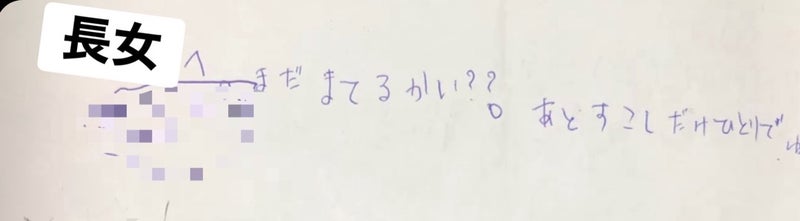 長女
へ
まだまてるかい??
あとすこしだけひとりで